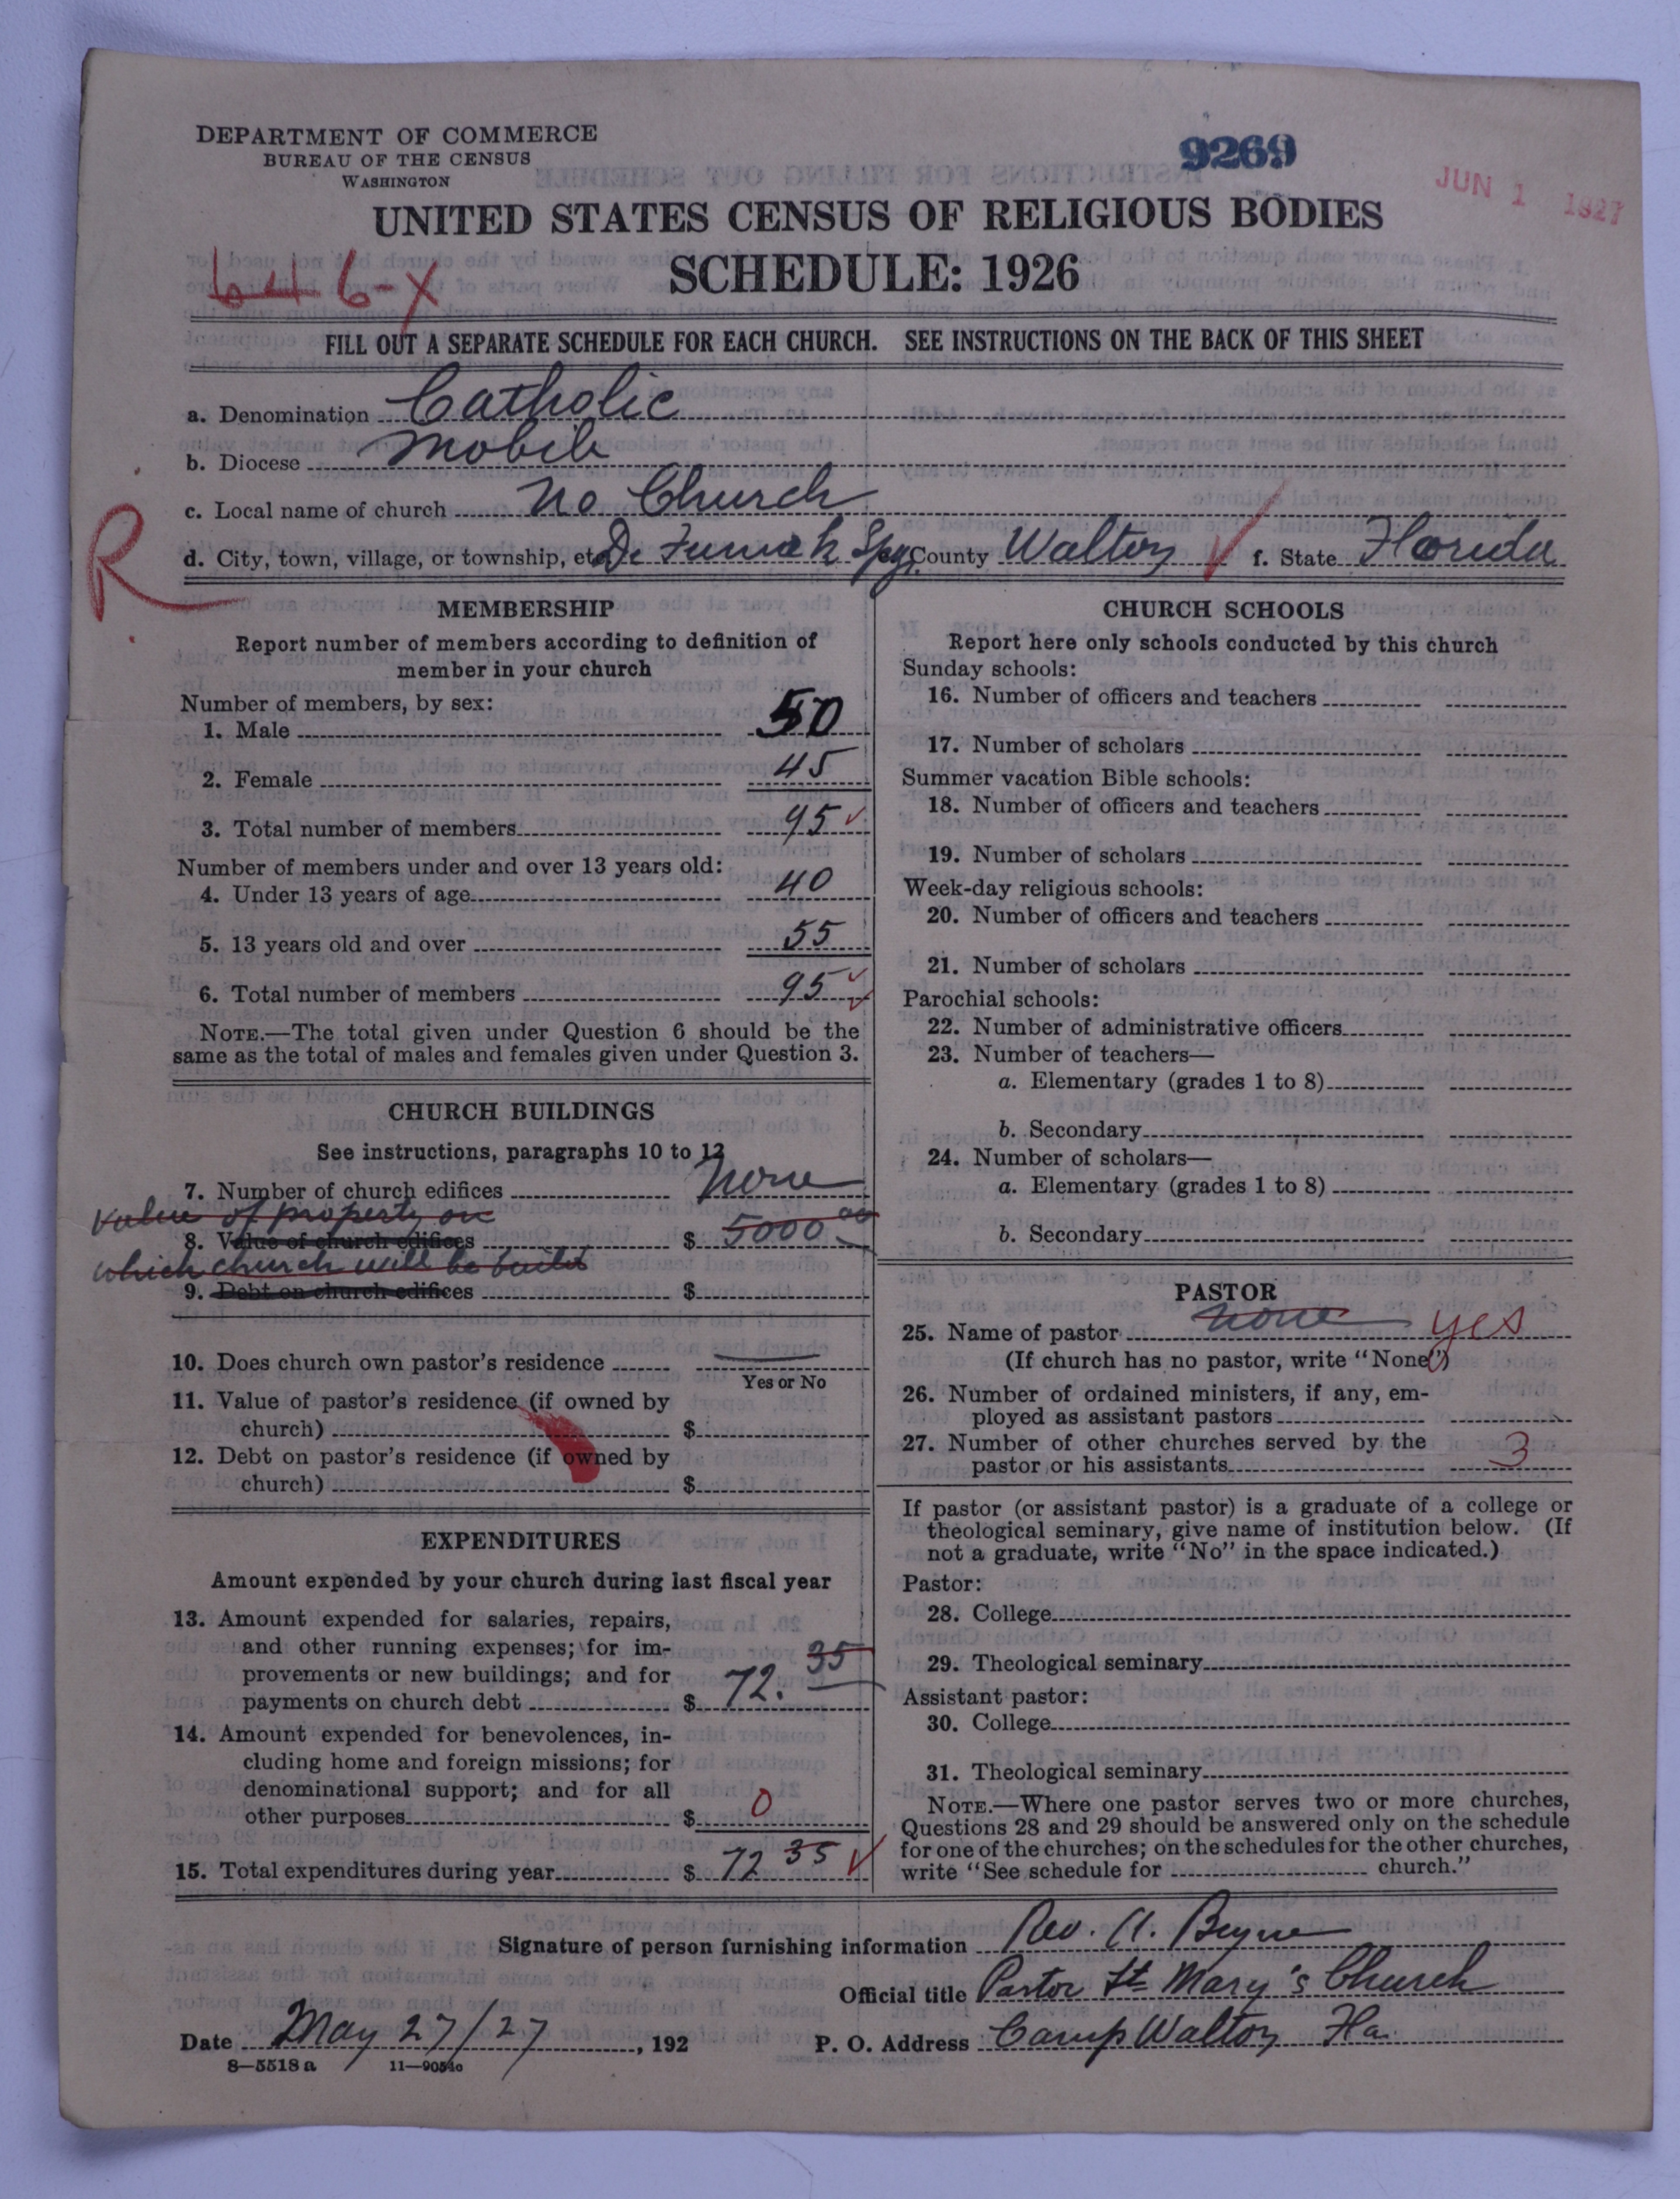 DEPARTMENT OF COMMERCE
BUREAU OF THE CENSUS
WASHINGTON
9269
JUN 1 1927
UNITED STATES CENSUS OF RELIGIOUS BODIES
SCHEDULE: 1926
6-X
FILL OUT A SEPARATE SCHEDULE FOR EACH CHURCH. SEE INSTRUCTIONS ON THE BACK OF THIS SHEET
a. Denomination Catholic
b. Diocese Mobile
c. Local name of church No Church
R
d. City, town, village, or township, etc. De Funiak Spgs County Walton f. State Florida
MEMBERSHIP
Report number of members according to definition of
member in your church
Number of members, by sex:
1. Male 50
2. Female 45
3. Total number of members 95
Number of members under and over 13 years old:
4. Under 13 years of age 40
5. 13 years old and over 55
6. Total number of members 95
NOTE.—The total given under Question 6 should be the
same as the total of males and females given under Question 3.
CHURCH BUILDINGS
See instructions, paragraphs 10 to 12
7. Number of church edifices None
Value of property on
8. Value of church edifices $ 5000 00
which church will be built
9. Debt on church edifices $
10. Does church own pastor's residence
Yes or No
11. Value of pastor's residence (if owned by
church) $
12. Debt on pastor's residence (if owned by
church) $
EXPENDITURES
Amount expended by your church during last fiscal year
13. Amount expended for salaries, repairs,
and other running expenses; for im-
provements or new buildings; and for
payments on church debt $ 72. 35
14. Amount expended for benevolences, in-
cluding home and foreign missions; for
denominational support; and for all
other purposes $ 0
15. Total expenditures during year $ 72 35
CHURCH SCHOOLS
Report here only schools conducted by this church
Sunday schools:
16. Number of officers and teachers
17. Number of scholars
Summer vacation Bible schools:
18. Number of officers and teachers
19. Number of scholars
Week-day religious schools:
20. Number of officers and teachers
21. Number of scholars
Parochial schools:
22. Number of administrative officers
23. Number of teachers—
a. Elementary (grades 1 to 8)
b. Secondary
24. Number of scholars—
a. Elementary (grades 1 to 8)
b. Secondary
PASTOR
25. Name of pastor None yes
(If church has no pastor, write "None")
26. Number of ordained ministers, if any, em-
ployed as assistant pastors
27. Number of other churches served by the
pastor or his assistants 3
If pastor (or assistant pastor) is a graduate of a college or
theological seminary, give name of institution below. (If
not a graduate, write "No" in the space indicated.)
Pastor:
28. College
29. Theological seminary
Assistant pastor:
30. College
31. Theological seminary
NOTE.—Where one pastor serves two or more churches,
Questions 28 and 29 should be answered only on the schedule
for one of the churches; on the schedules for the other churches,
write "See schedule for church."
Signature of person furnishing information Rev. A. Byrne
Official title Pastor St Mary's Church
Date May 27/27, 192 P. O. Address Camp Walton Fla.
8—5518 a 11—9054c